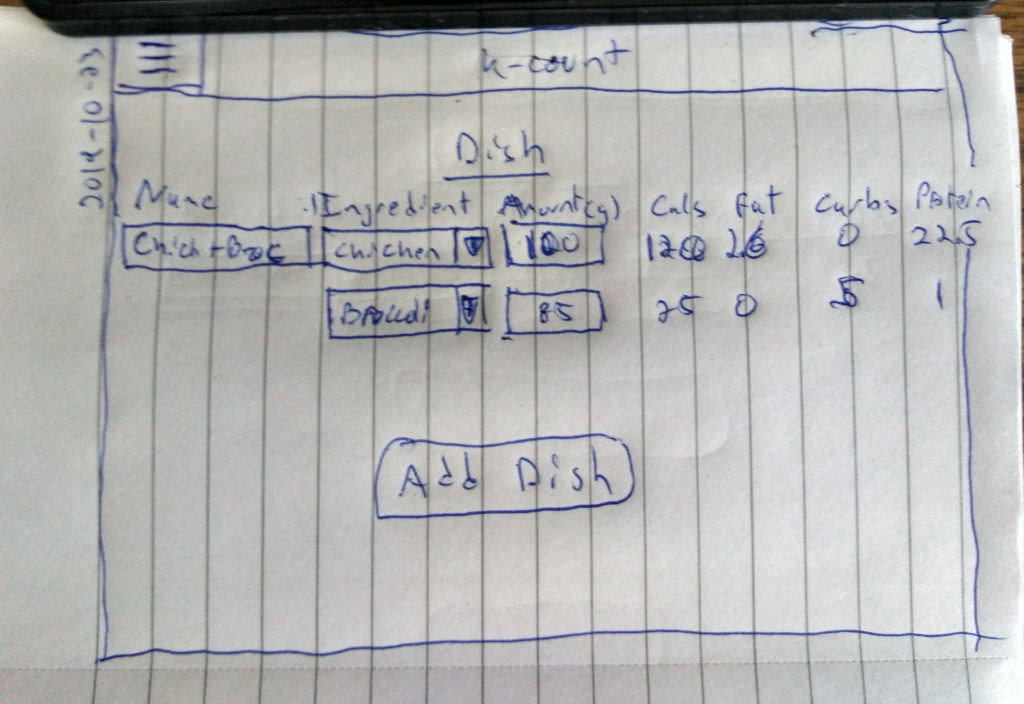 2014-10-23
k-count
Dish
Name Ingredient Amount(g) Cals Fat Carbs Protein
Chick+Broc Chicken 100 120 0 22.5
Broccoli 85 25 0 5 1
Add Dish